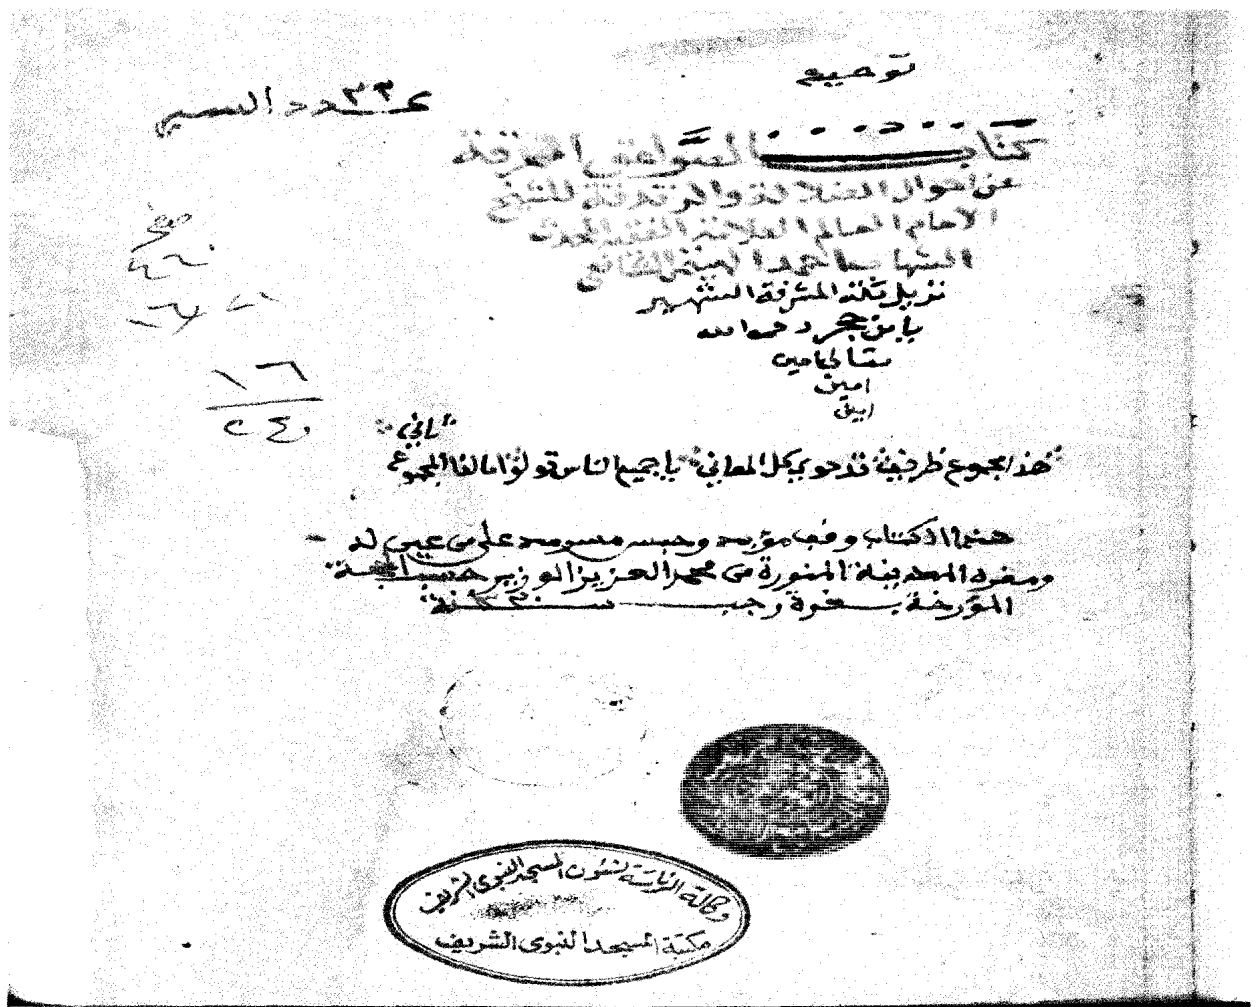 توحيد
عدد السير ٣٣
كتاب الصواعق المحرقة
عن أحوال الضلالة والزندقة للشيخ
الامام العالم العلامة الفقيه المحدث
الشهاب احمد الهيتمي الشافعي
نزيل مكة المشرفة الشهير
بابن حجر رحمه الله
تعالى امين
امين
امين
١٦
هذا المجموع ظريف قد حوى كل المعاني يا جميع الناس قولوا ما لهذا المجموع ثاني
هذا الكتاب وقف مؤبد وحبس مسرمد على من عين له
ومقره المدينة المنورة من محمد العزيز الوزير حسب الحجة
المؤرخة بغرة رجب سنة
وكالة الرئاسة لشئون المسجد النبوى الشريف
مكتبة المسجد النبوى الشريف